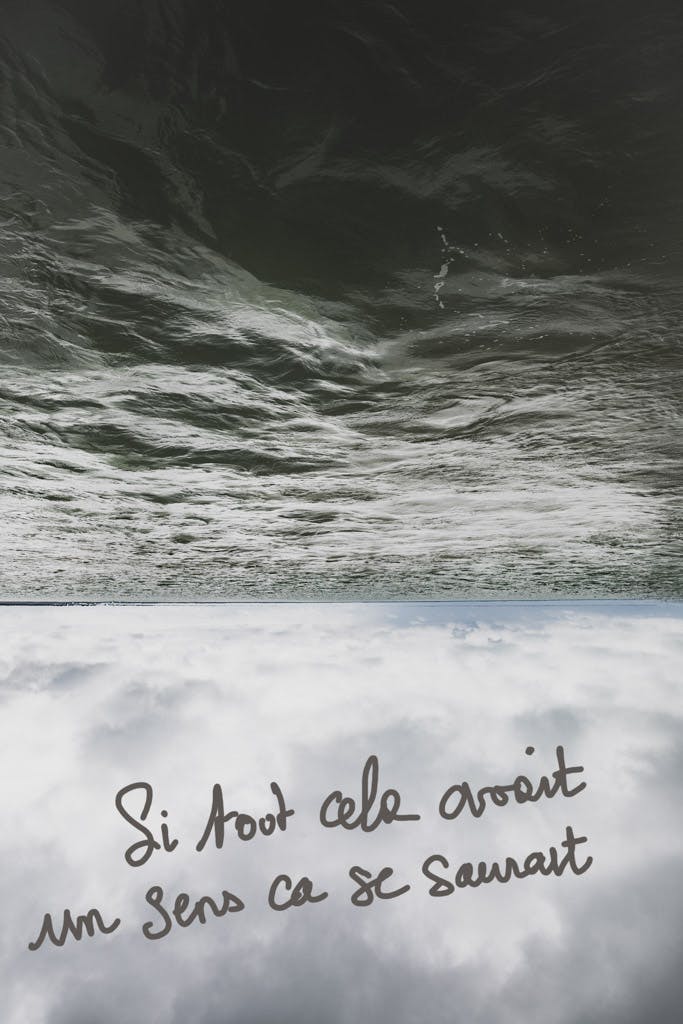 Si tout cela avait
un sens ca se saurait